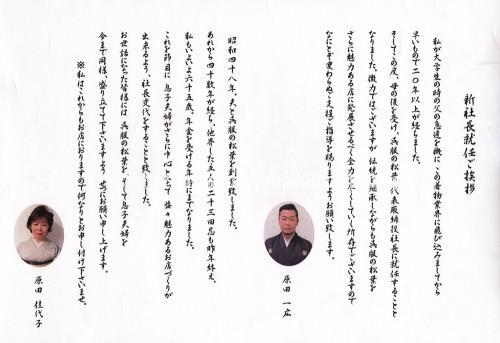 新社長就任ご挨拶
私が大学生の時の父の急逝を機に、この着物業界に飛び込みましてから
早いもので二〇年以上が経ちました。
そしてこの度、母の後を受け、呉服の松葉 代表取締役社長に就任することと
なりました。微力ではございますが 伝統を継承しながらも呉服の松葉を
さらに魅力ある店に発展させるべく全力を尽くしていく所存でございますので
なにとぞ変わらぬご支援ご指導を賜りますようお願い致します。
原田 一広
昭和四十八年。夫と呉服の松葉を創業致しました。
あれから四十数年が経ち、他界した主人の二十三回忌も昨年終え、
私もいよいよ六十五歳。年金を受ける年時にまでなりました。
これを節目に 息子夫婦がさらに中心となって 益々魅力あるお店づくりが
出来るよう、社長交代をすることと致しました。
お世話になった皆様には 呉服の松葉を、そして息子夫婦を
今まで同様、盛り立てて下さいますよう 切にお願い申し上げます。
※私はこれからもお店におりますので何なりとお申し付け下さいませ。
原田 佳代子